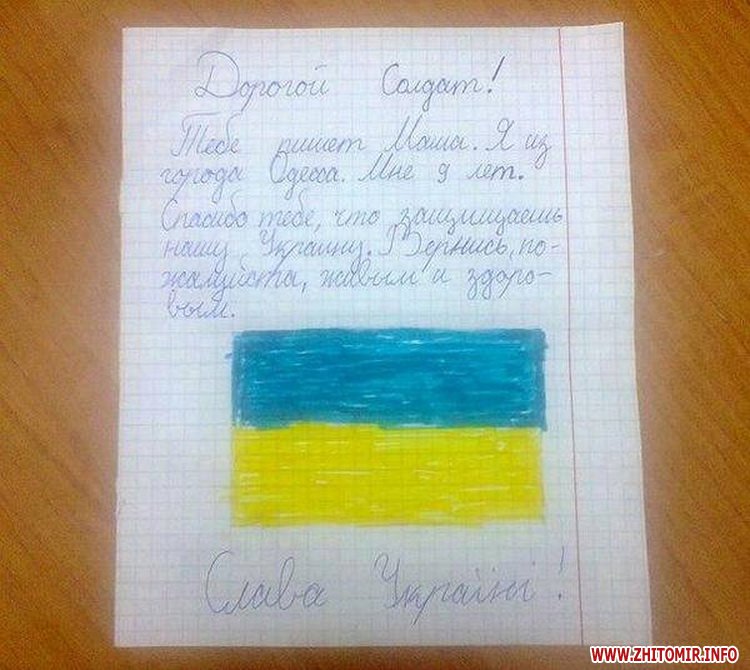 Дорогой Солдат!
Тебе пишет Маша. Я из
города Одесса. Мне 9 лет.
Спасибо тебе, что защищаешь
нашу Украину. Вернись, по-
жалуйста, живым и здоро-
вым.
Слава Україні!
WWW.ZHITOMIR.INFO